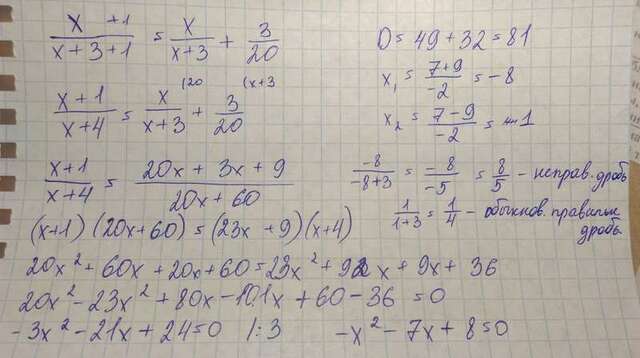 (x +1)/(x+3+1) = x/(x+3) + 3/20
(x+1)/(x+4) = x/(x+3) (20 + 3/20 (x+3
(x+1)/(x+4) = (20x + 3x + 9)/(20x + 60)
(x+1) (20x+60) = (23x +9)(x+4)
20x² + 60x + 20x + 60 = 23x² + 92x + 9x + 36
20x² - 23x² + 80x - 101x + 60 - 36 = 0
-3x² - 21x + 24 = 0 |:3 -x² - 7x + 8 = 0
D = 49 + 32 = 81
x₁ = (7+9)/(-2) = -8
x₂ = (7-9)/(-2) = 1
(-8)/(-8+3) = (-8)/(-5) = 8/5 - неправ. дробь
1/(1+3) = 1/4 - обыкнов. правильн
дробь.